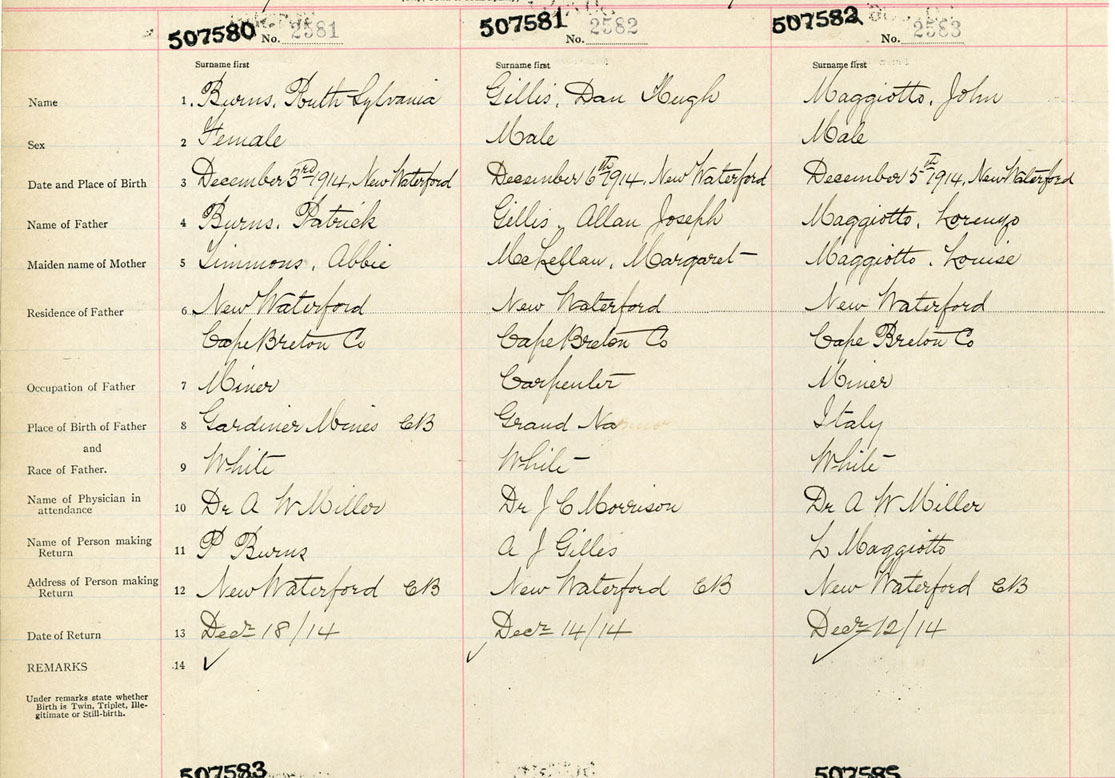 507580 No. 2581
507581 No. 2582
507582 No. 2583
Surname first Surname first Surname first
Name 1. Burns, Ruth Sylvania Gillis, Dan Hugh Maggiotto, John
Sex 2 Female Male Male
Date and Place of Birth 3 December 3rd 1914, New Waterford December 6th 1914, New Waterford December 5th 1914, New Waterford
Name of Father 4 Burns, Patrick Gillis, Allan Joseph Maggiotto, Lorenzo
Maiden name of Mother 5 Timmons, Abbie McLellan, Margaret Maggiotto, Louise
Residence of Father 6 New Waterford New Waterford New Waterford
Cape Breton Co Cape Breton Co Cape Breton Co
Occupation of Father 7 Miner Carpenter Miner
Place of Birth of Father 8 Gardiner Mines CB Grand Italy
and
Race of Father. 9 White White White
Name of Physician in
attendance 10 Dr A W Miller Dr J C Morrison Dr A W Miller
Name of Person making
Return 11 P Burns A J Gillis L Maggiotto
Address of Person making
Return 12 New Waterford CB New Waterford CB New Waterford CB
Date of Return 13 Decr 18/14 Decr 14/14 Decr 12/14
REMARKS 14
Under remarks state whether
Birth is Twin, Triplet, Ille-
gitimate or Still-birth.
507583 507585